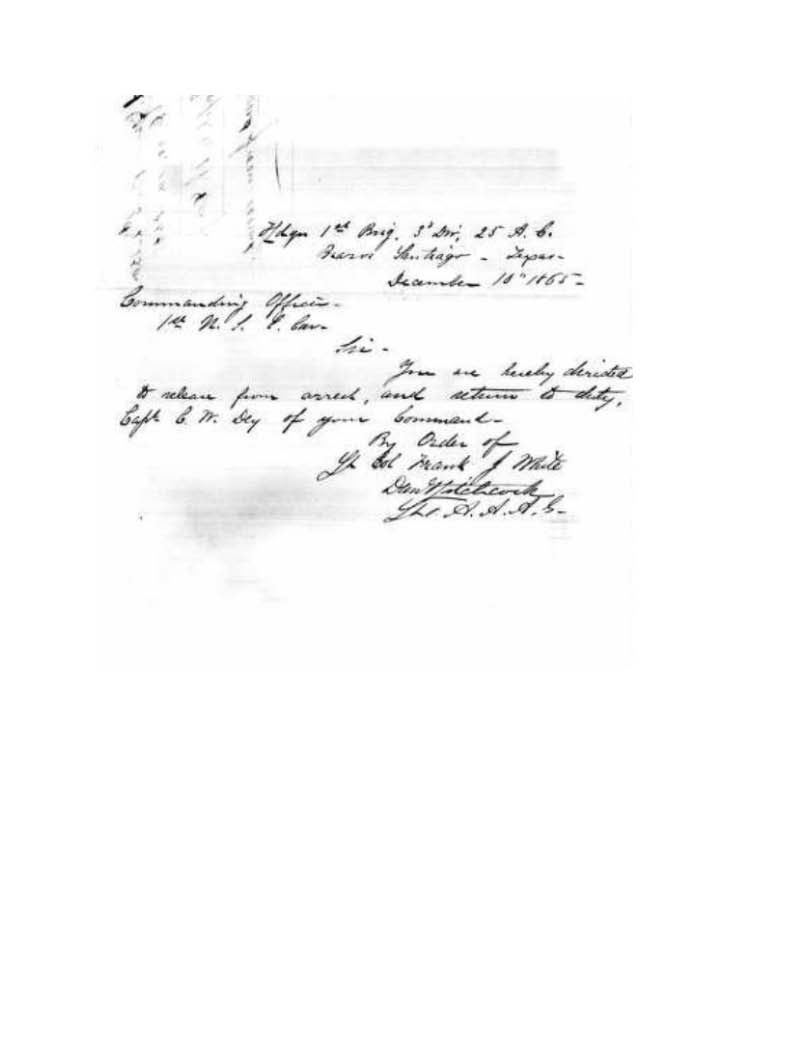 Hdqrs 1st Brig, 3d Div, 25 A. C.
Brazos Santiago - Texas -
December 10" 1865 -
Commanding Officer -
1st U. S. C. Cav -
Sir -
You are hereby directed
to release from arrest, and return to duty,
Capt C. W. Dey of your Command -
By Order of
Lt Col Frank J White
Dan Hitchcock
Lt. A. A. A. G -